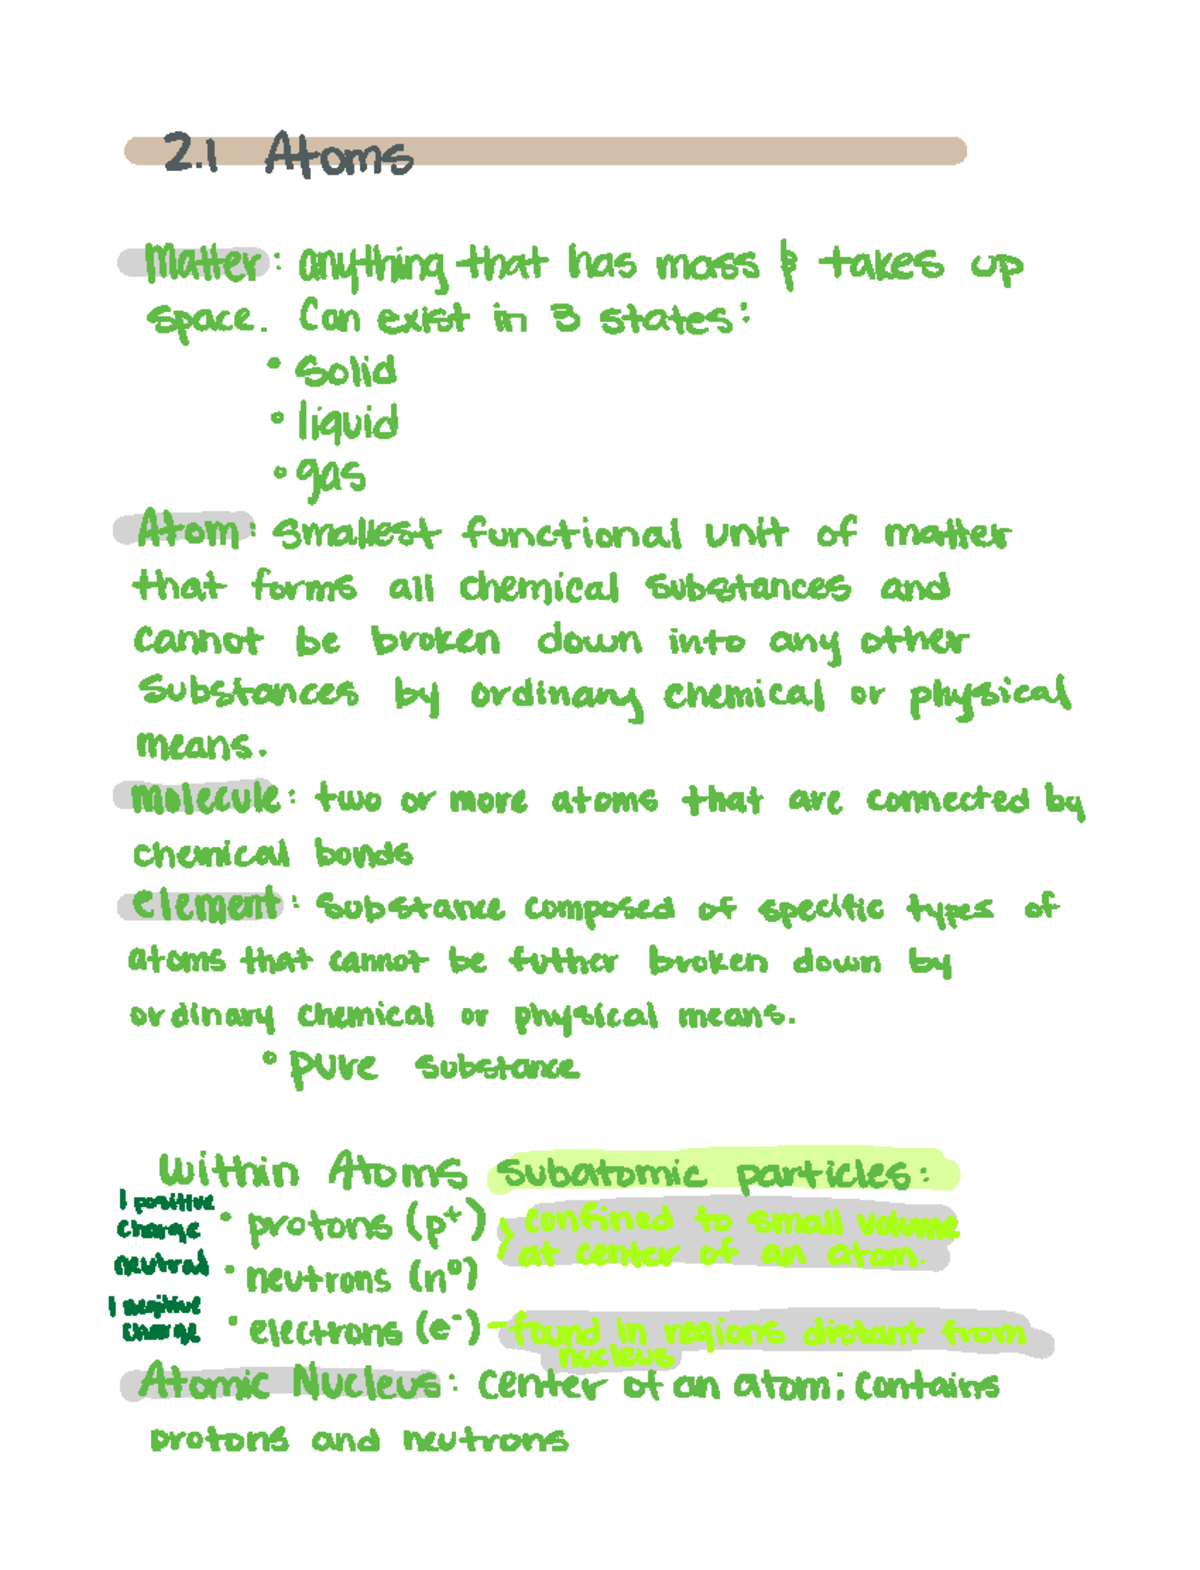 2.1 Atoms
Matter: anything that has mass & takes up
space. Can exist in 3 states:
• solid
• liquid
• gas
Atom: smallest functional unit of matter
that forms all chemical substances and
cannot be broken down into any other
substances by ordinary chemical or physical
means.
Molecule: two or more atoms that are connected by
chemical bonds
Element: substance composed of specific types of
atoms that cannot be futher broken down by
ordinary chemical or physical means.
• pure substance
Within Atoms subatomic particles:
1 positive
charge
• protons (p⁺) } confined to small volume
at center of an atom.
neutral • neutrons (n⁰)
1 negitive
charge
• electrons (e⁻) - found in regions distant from
nucleus
Atomic Nucleus: center of an atom; contains
protons and neutrons